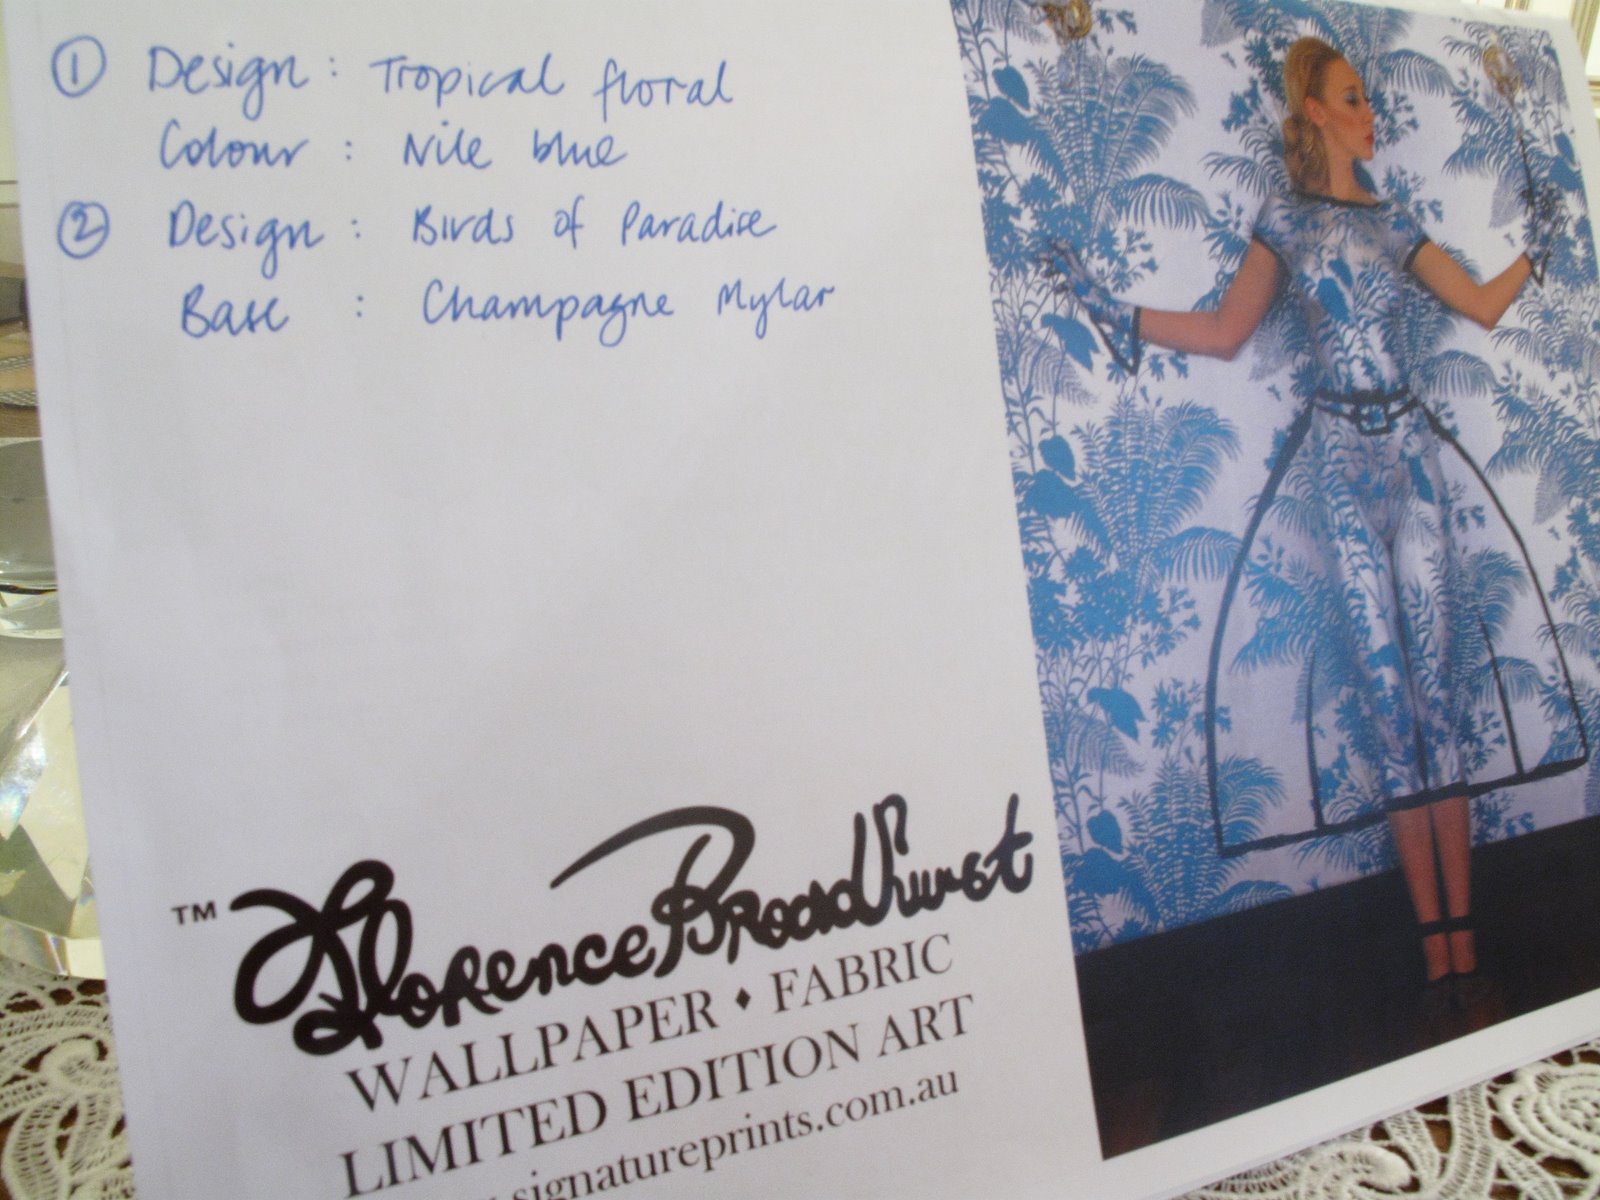 ① Design : Tropical floral
Colour : Nile blue
② Design : Birds of Paradise
Base : Champagne Mylar
™ Florence Broadhurst
WALLPAPER ♦ FABRIC
LIMITED EDITION ART
signatureprints.com.au